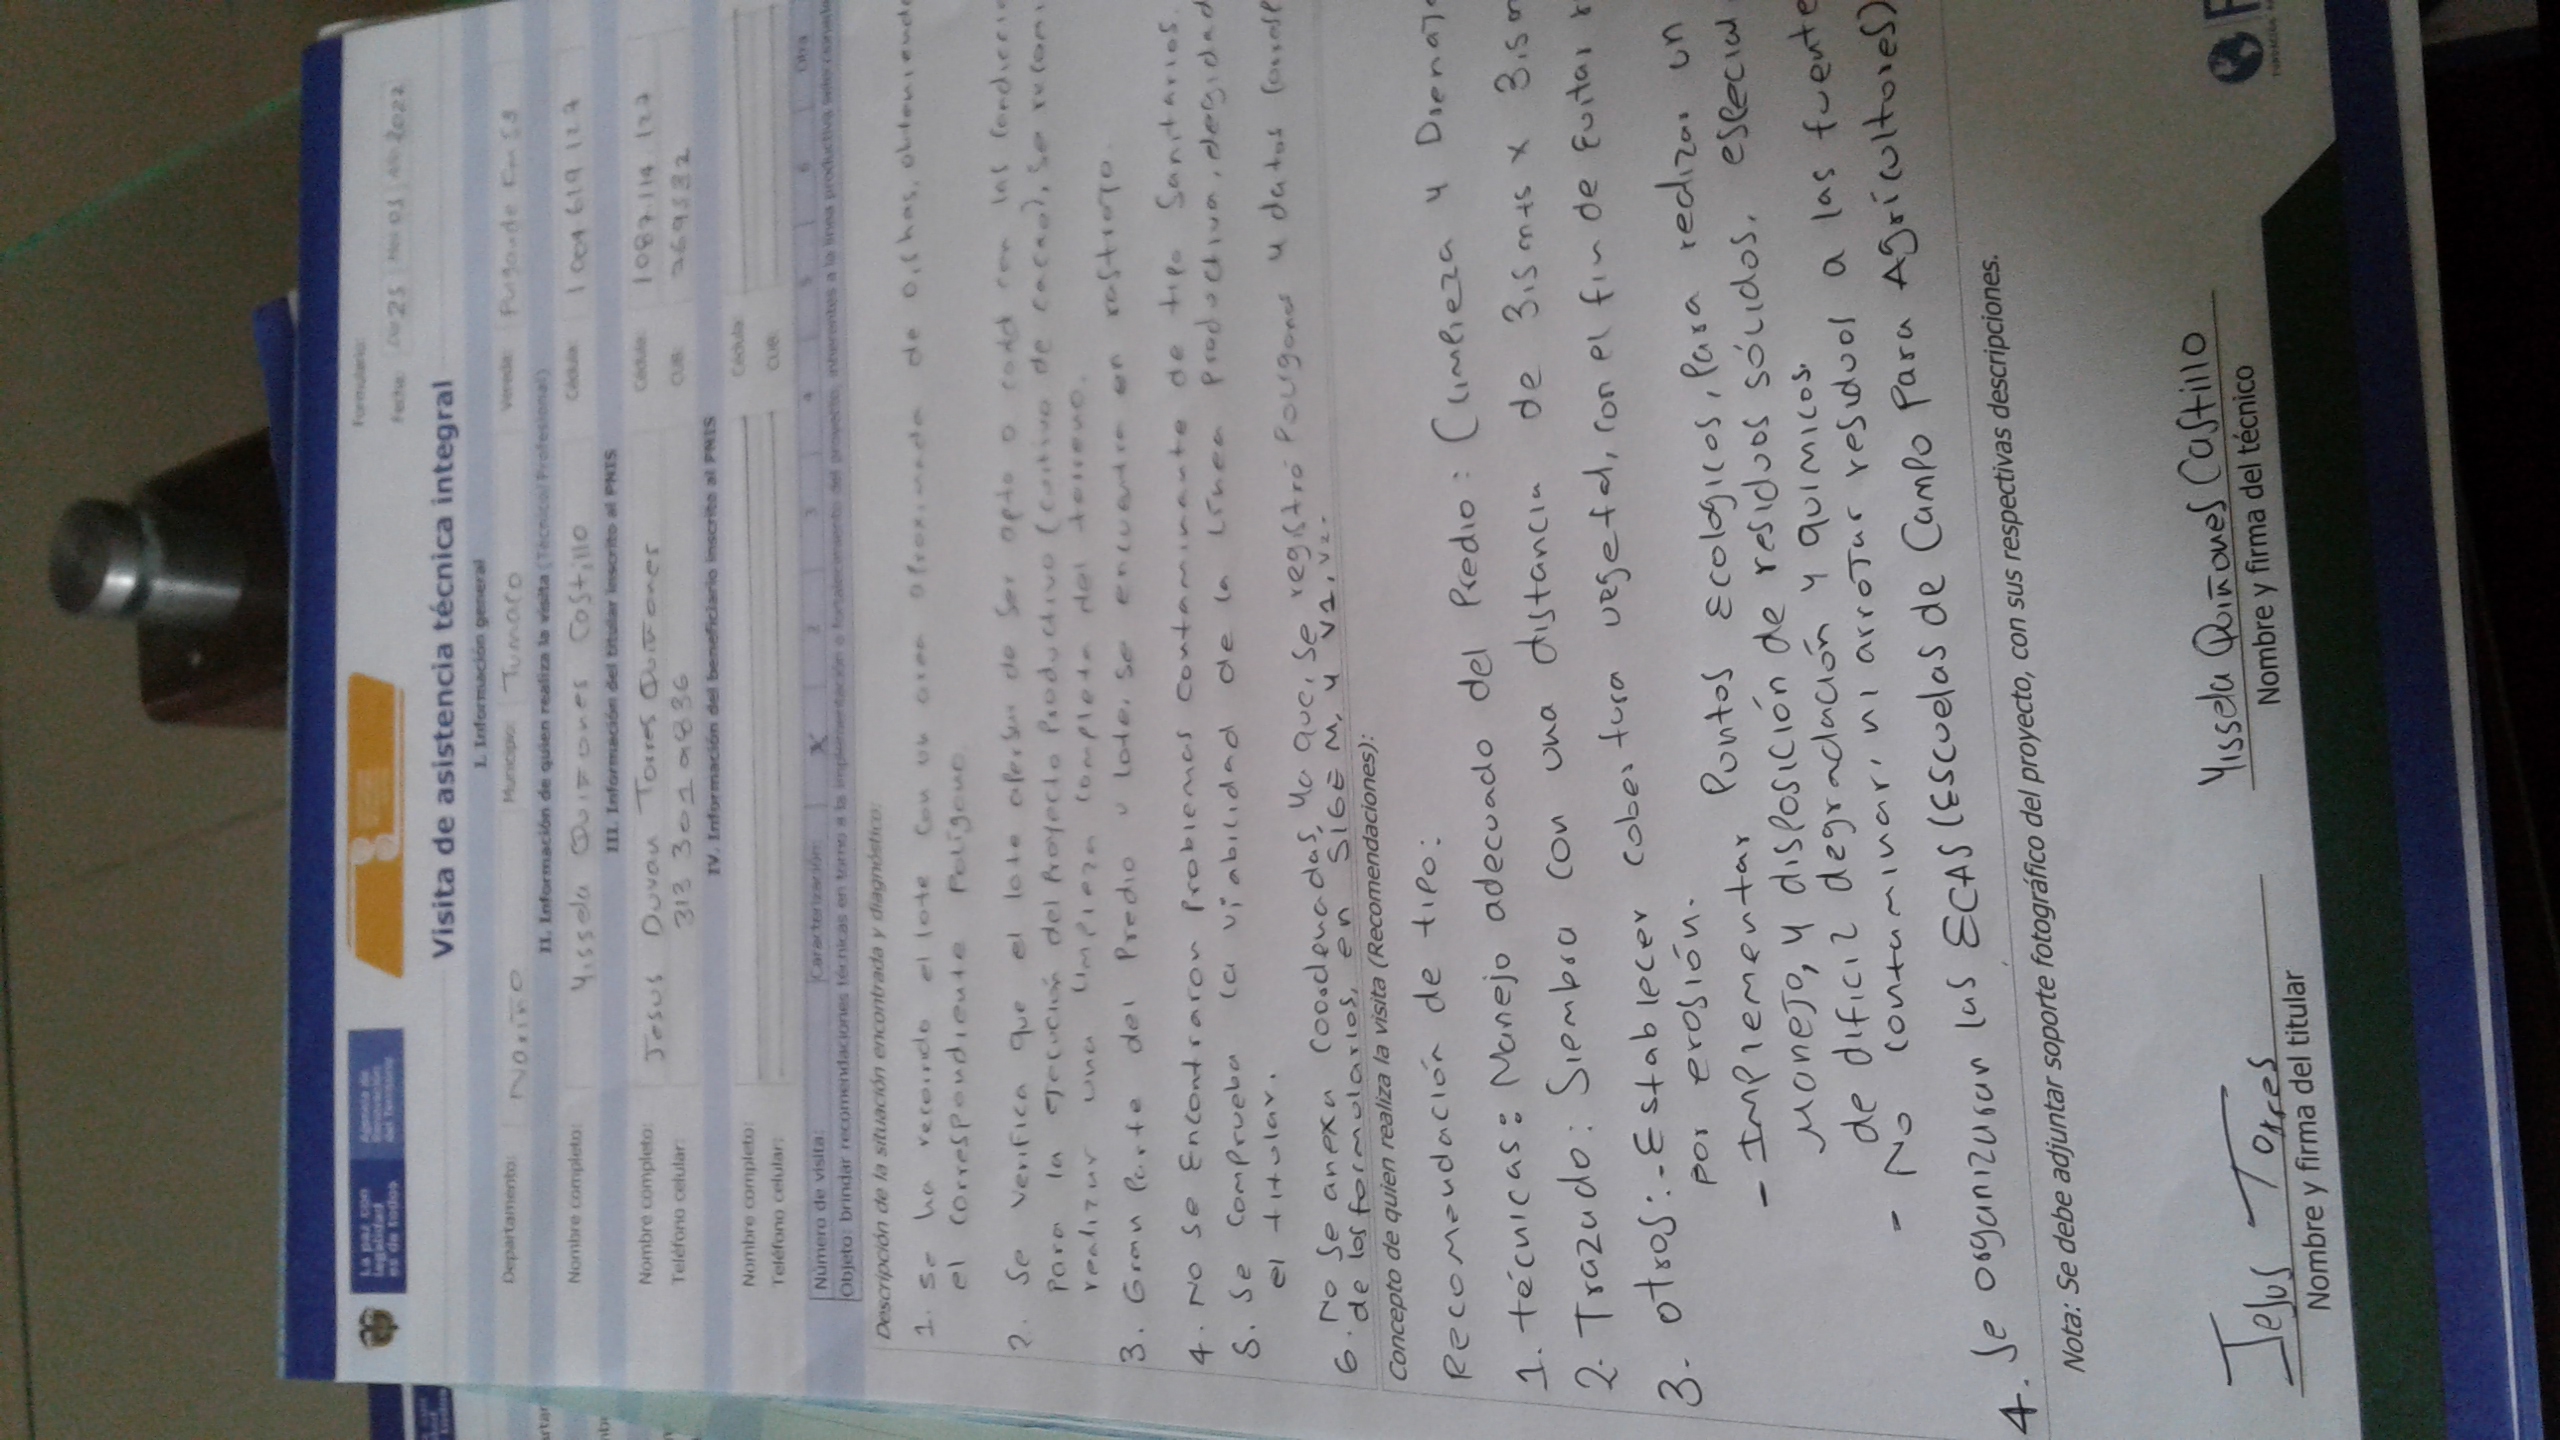 La paz con
legalidad
es de todos
Agencia de
Renovación
del Territorio
Formulario:
Fecha: 25 03 2022
Visita de asistencia técnica integral
I. Información general
Departamento: Nariño Municipio: Tumaco Vereda:
II. Información de quien realiza la visita (Técnico/Profesional)
Nombre completo: Yissela Quiñones Castillo Cédula: 1004619127
III. Información del titular inscrito al PNIS
Nombre completo: Jesus Duvan Torres Quiñones Cédula: 1087.114.127
Teléfono celular: CUB: 269532
IV. Información del beneficiario inscrito al PNIS
Nombre completo: Cédula:
Teléfono celular: CUB:
Número de visita: Caracterización: X 2 3 4 5 6 Otra
Objeto: brindar recomendaciones técnicas en torno a la implementación o fortalecimiento del proyecto, inherentes a la línea productiva seleccionada
Descripción de la situación encontrada y diagnóstico:
1. Se ha recorrido el lote con un area aproximada de 0.5 has, obteniendo
el correspondiente Polígono.
2. Se verifica que el lote apesar de ser apto o cabal con las
para la ejecución del Proyecto Productivo (cultivo de cacao), se
realizar una limpieza completa del terreno.
3. Gran parte del Predio u lote, se encuentra en rastrojo.
4. No se Encontraron Problemas contaminante de tipo Sanitarios.
5. Se comprueba la viabilidad de la Línea Productiva, elegida
el titular.
6. No se anexa coordenadas, ya que, se registró Polygono y datos
de los formularios, en SIGEM, y V1, V2.
Concepto de quien realiza la visita (Recomendaciones):
Recomendación de tipo:
1. técnicas: Manejo adecuado del Predio: (Limpieza y
2. Trazado: Siembra con una distancia de 3.5 mts x 3.5
3. otros: - Establecer cobertura vegetal, con el fin de Evitar
por erosión.
- Implementar Puntos Ecologicos, Para realizar un
Manejo, y disposición de residuos sólidos,
de dificil degradación y quimicos.
- No contaminar, ni arrojar residuos a las
4. Se organizaran las ECAS (Escuelas de Campo Para Agricultores)
Nota: Se debe adjuntar soporte fotográfico del proyecto, con sus respectivas descripciones.
Jesus Torres Yissela Quiñones Castillo
Nombre y firma del titular Nombre y firma del técnico